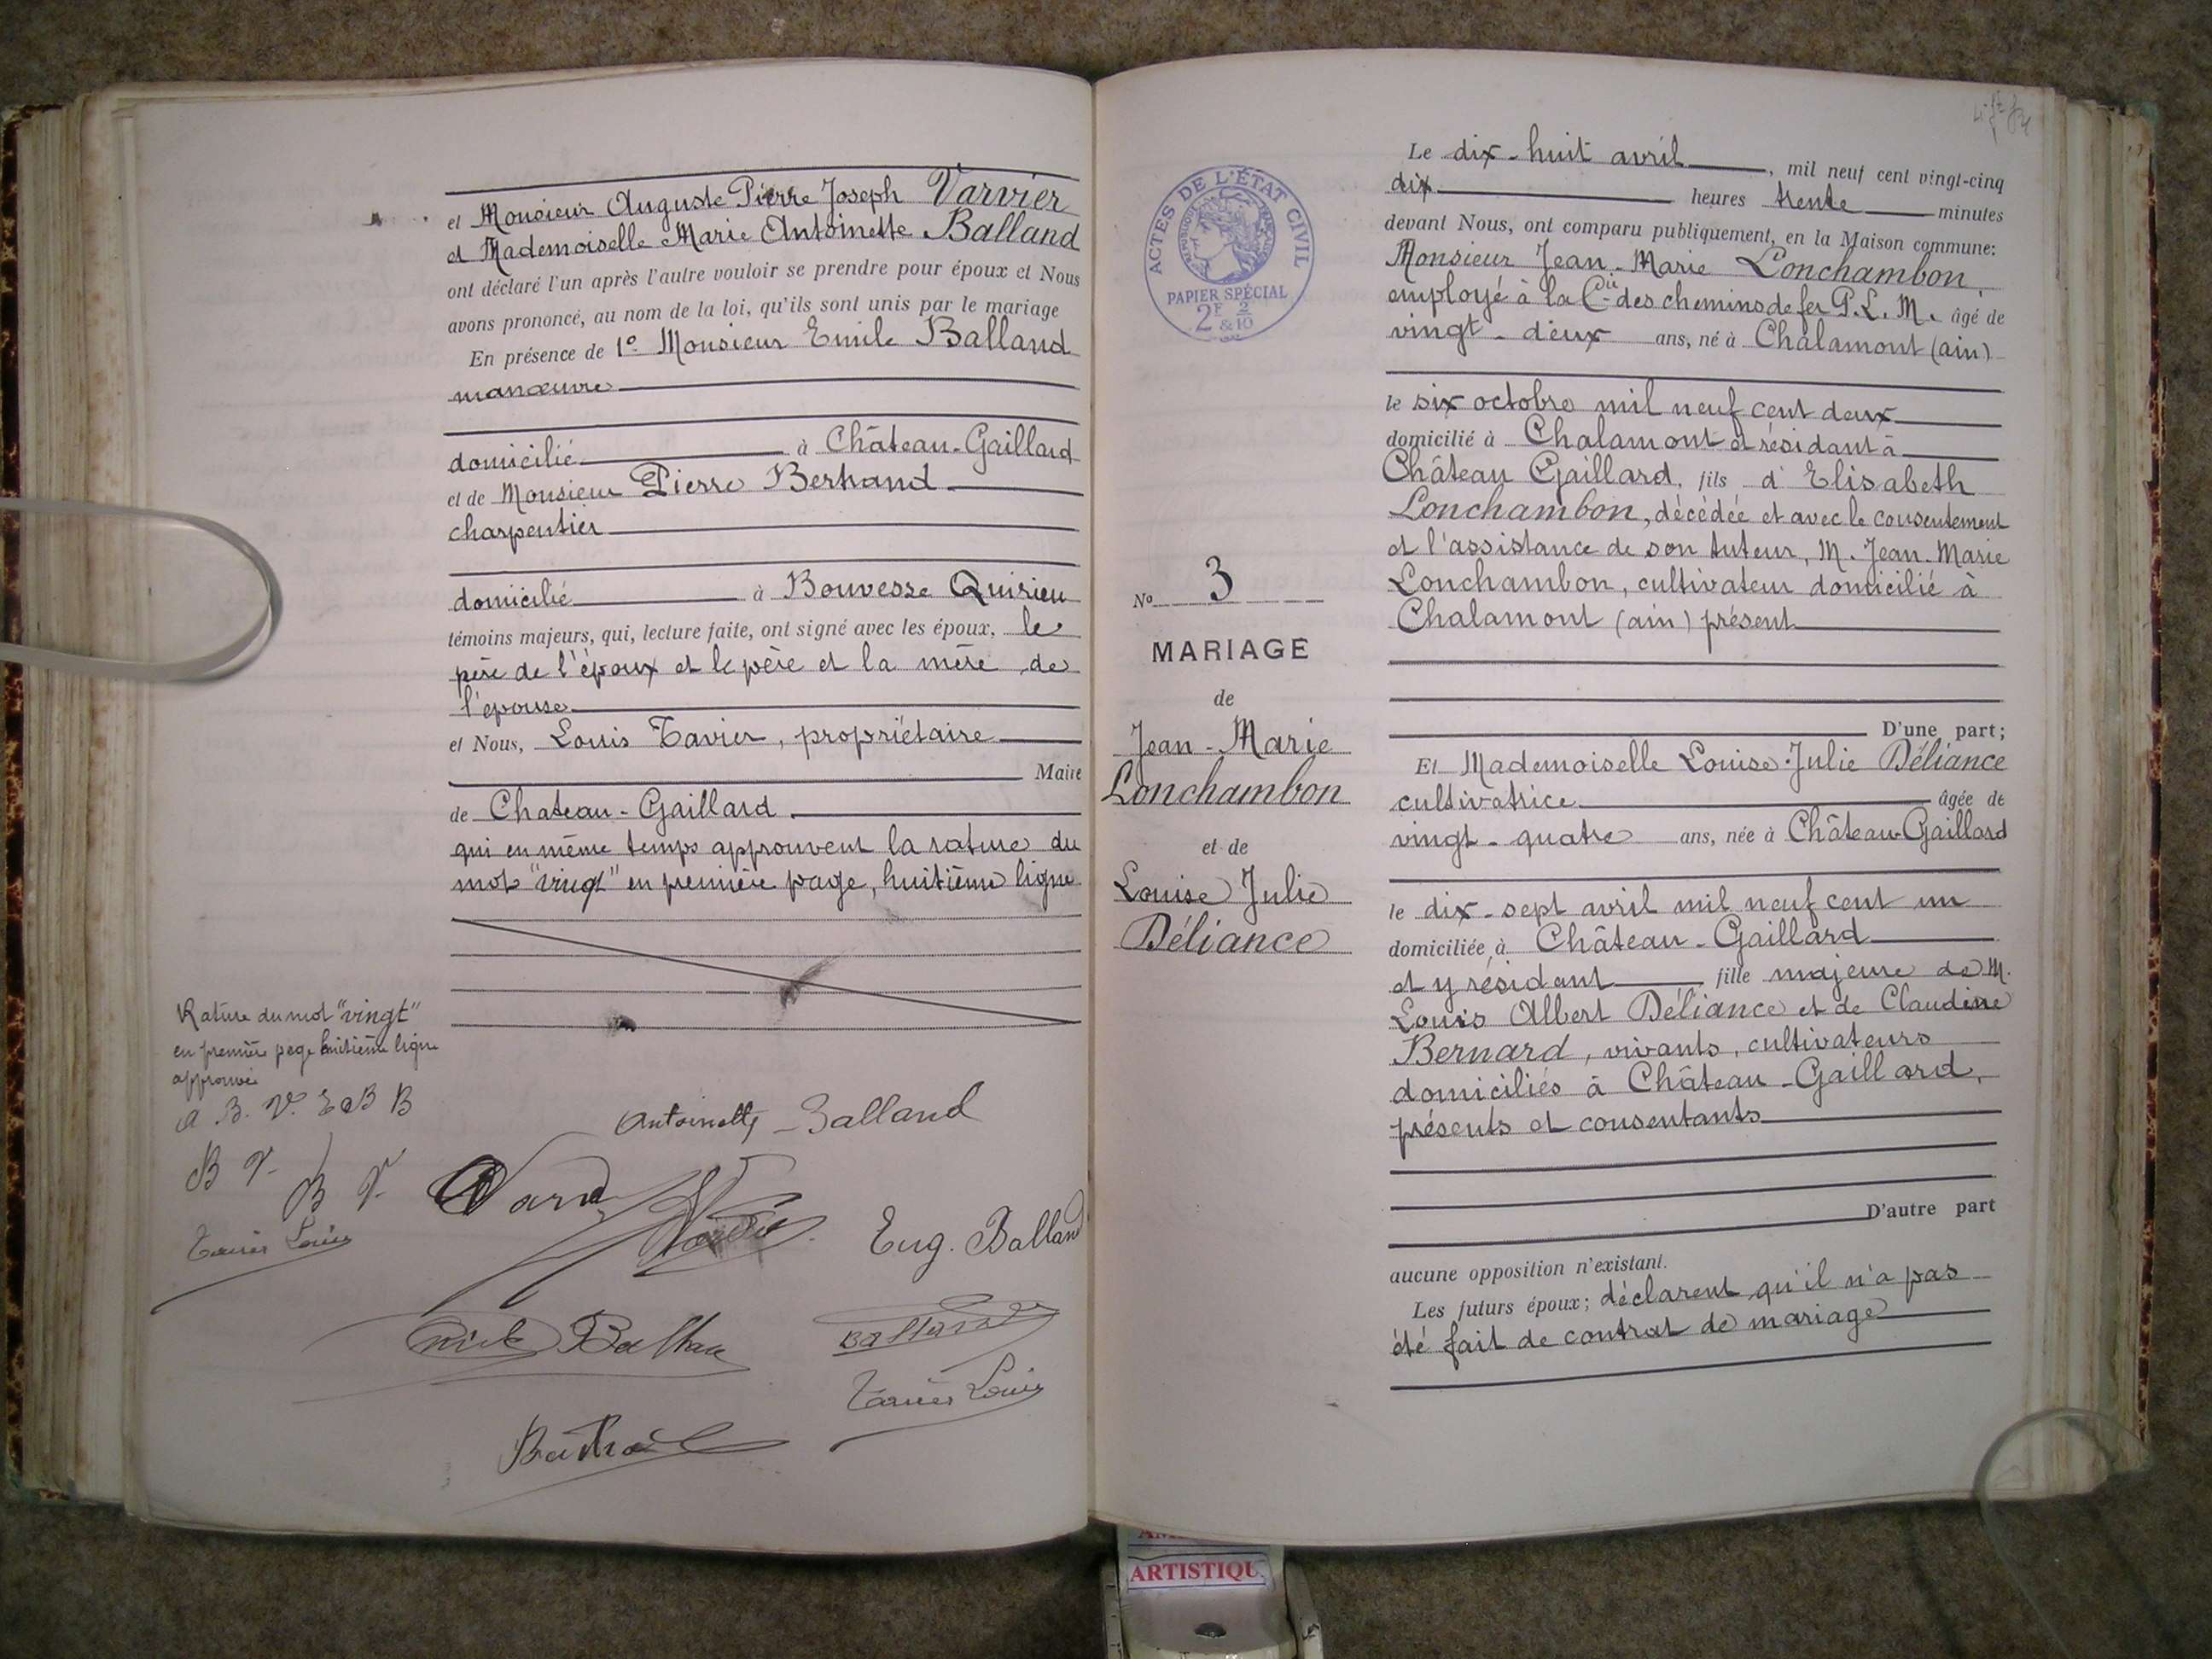 et Monsieur Auguste Pierre Joseph Varvier
et Mademoiselle Marie Antoinette Balland
ont déclaré l'un après l'autre vouloir se prendre pour époux et Nous
avons prononcé, au nom de la loi, qu'ils sont unis par le mariage
En présence de 1º Monsieur Emile Balland
manœuvre
domicilié à Château-Gaillard
et de Monsieur Pierre Bertrand
charpentier
domicilié à Bouvesse Quirieu
témoins majeurs, qui, lecture faite, ont signé avec les époux, le
père de l'époux et le père et la mère de
l'épouse
et Nous, Louis Tavier, propriétaire
Maire
de Chateau-Gaillard
qui en même temps approuvent la rature du
mot "vingt" en première page, huitième ligne
Rature du mot "vingt"
en première page huitième ligne
approuvé
A. B. V. E B B
B V.
B V.
Tavier Louis
Antoinette Balland
Eug. Balland
Balland
Tavier Louis
ACTES DE L'ÉTAT CIVIL
PAPIER SPÉCIAL
2F 2/10
No 3
MARIAGE
de
Jean-Marie
Lonchambon
et de
Louise Julie
Déliance
Le dix-huit avril, mil neuf cent vingt-cinq
dix heures trente minutes
devant Nous, ont comparu publiquement, en la Maison commune:
Monsieur Jean-Marie Lonchambon,
employé à la Cie des chemins de fer P.L.M. âgé de
vingt-deux ans, né à Chalamont (ain)
le six octobre mil neuf cent deux
domicilié à Chalamont et résidant à
Château Gaillard, fils d'Elisabeth
Lonchambon, décédée et avec le consentement
et l'assistance de son tuteur, M. Jean-Marie
Lonchambon, cultivateur domicilié à
Chalamont (ain) présent
D'une part;
Et Mademoiselle Louise-Julie Déliance
cultivatrice âgée de
vingt-quatre ans, née à Château-Gaillard
le dix-sept avril mil neuf cent un
domiciliée à Château-Gaillard
et y résidant fille majeure de M.
Louis Albert Déliance et de Claudine
Bernard, vivants, cultivateurs
domiciliés à Château-Gaillard,
présents et consentants
D'autre part
aucune opposition n'existant.
Les futurs époux; déclarent qu'il n'a pas
été fait de contrat de mariage
ARTISTIQU